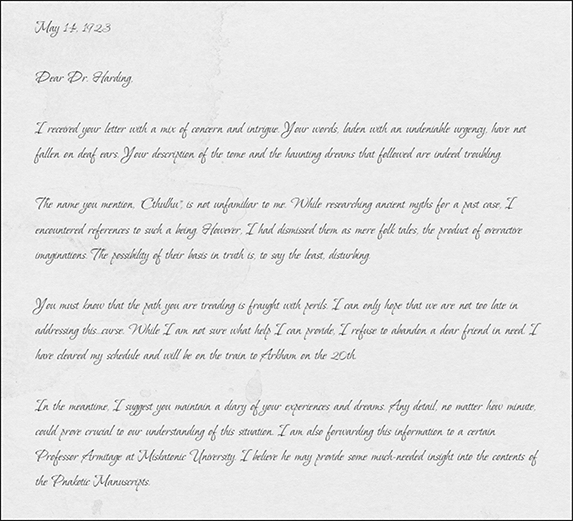 May 14, 1923
Dear Dr. Harding,
I received your letter with a mix of concern and intrigue. Your words, laden with an undeniable urgency, have not
fallen on deaf ears. Your description of the tome and the haunting dreams that followed are indeed troubling.
The name you mention, "Cthulhu", is not unfamiliar to me. While researching ancient myths for a past case, I
encountered references to such a being. However, I had dismissed them as mere folk tales, the product of overactive
imaginations. The possibility of their basis in truth is, to say the least, disturbing.
You must know that the path you are treading is fraught with perils. I can only hope that we are not too late in
addressing this...curse. While I am not sure what help I can provide, I refuse to abandon a dear friend in need. I
have cleared my schedule and will be on the train to Arkham on the 20th.
In the meantime, I suggest you maintain a diary of your experiences and dreams. Any detail, no matter how minute,
could prove crucial to our understanding of this situation. I am also forwarding this information to a certain
Professor Armitage at Miskatonic University. I believe he may provide some much-needed insight into the contents of
the Pnakotic Manuscripts.